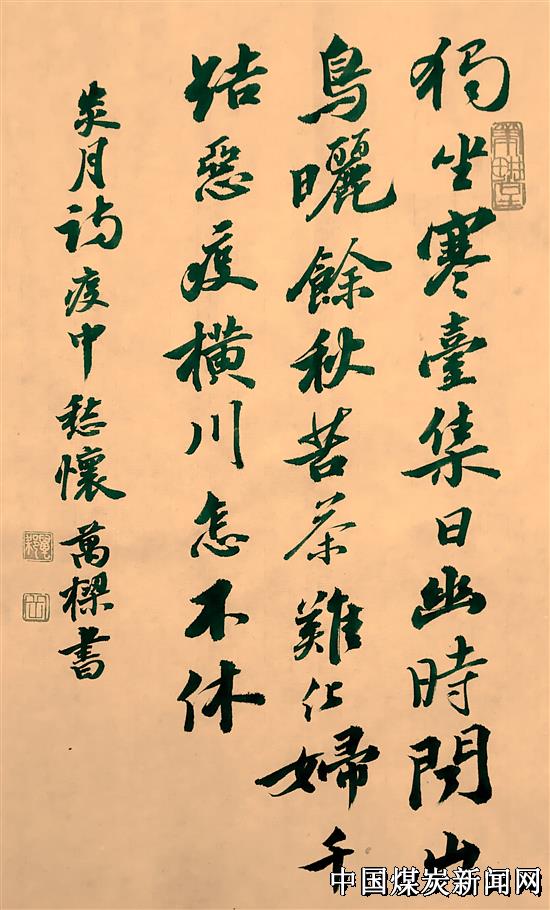 獨坐寒臺集日幽時聞山
鳥曬餘秋苦茶難化婦千
結惡疫橫川怎不休
炎月詩疫中愁懷 萬樑書
中国煤炭新闻网